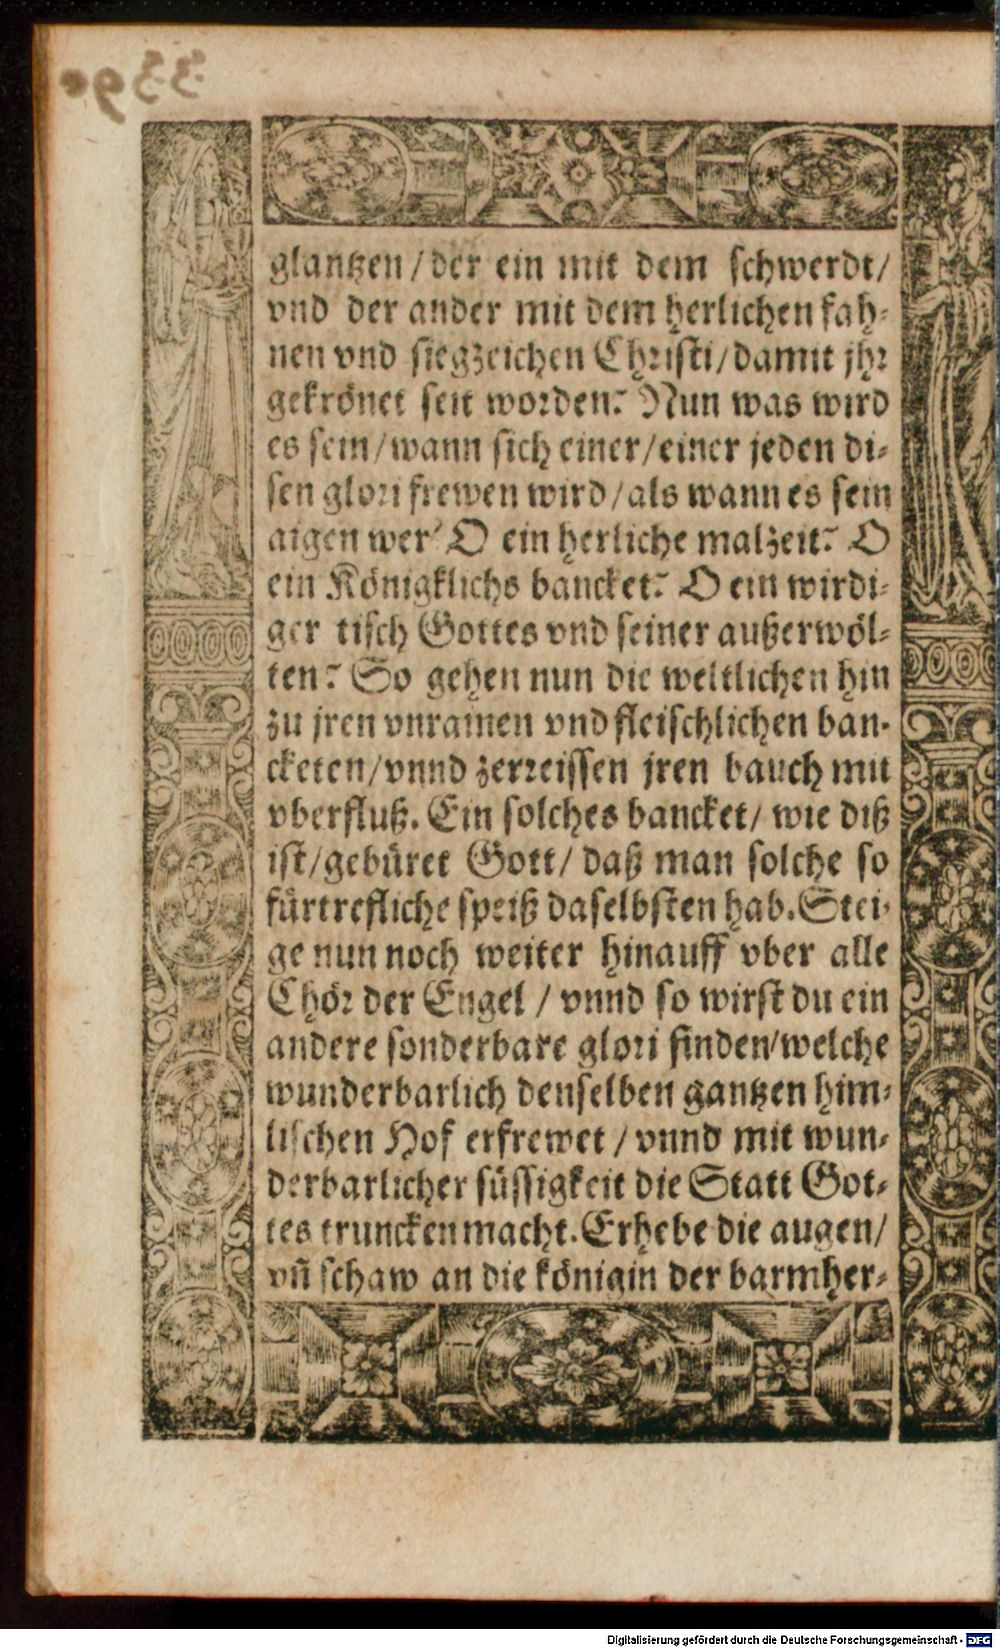 glantzen / der ein mit dem schwerdt /
vnd der ander mit dem herlichen fah-
nen vnd siegzeichen Christi / damit jhr
gekrönet seit worden? Nun was wird
es sein / wann sich einer / einer jeden di-
sen glori frewen wird / als wann es sein
aigen wer? O ein herliche malzeit? O
ein Königklichs bancket? O ein wirdi-
ger tisch Gottes vnd seiner außerwöl-
ten? So gehen nun die weltlichen hin
zu jren vnrainen vnd fleischlichen ban-
cketen / vnnd zerreissen jren bauch mit
vberfluß. Ein solches bancket / wie diß
ist / gebüret Gott / daß man solche so
fürtrefliche speiß daselbsten hab. Stei-
ge nun noch weiter hinauff vber alle
Chör der Engel / vnnd so wirst du ein
andere sonderbare glori finden / welche
wunderbarlich denselben gantzen him-
lischen Hof erfrewet / vnnd mit wun-
derbarlicher süssigkeit die Statt Got-
tes truncken macht. Erhebe die augen /
vñ schaw an die königin der barmher-
Digitalisierung gefördert durch die Deutsche Forschungsgemeinschaft - DFG